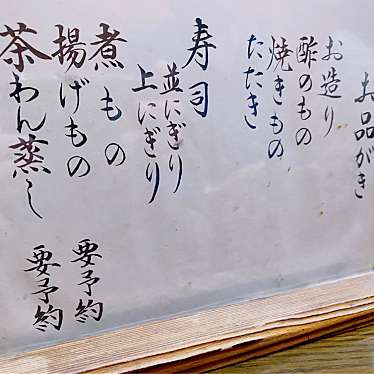 お品がき
お造り
酢のもの
焼きもの
たたき
寿司
並にぎり
上にぎり
煮もの
揚げもの 要予約
茶わん蒸し 要予約